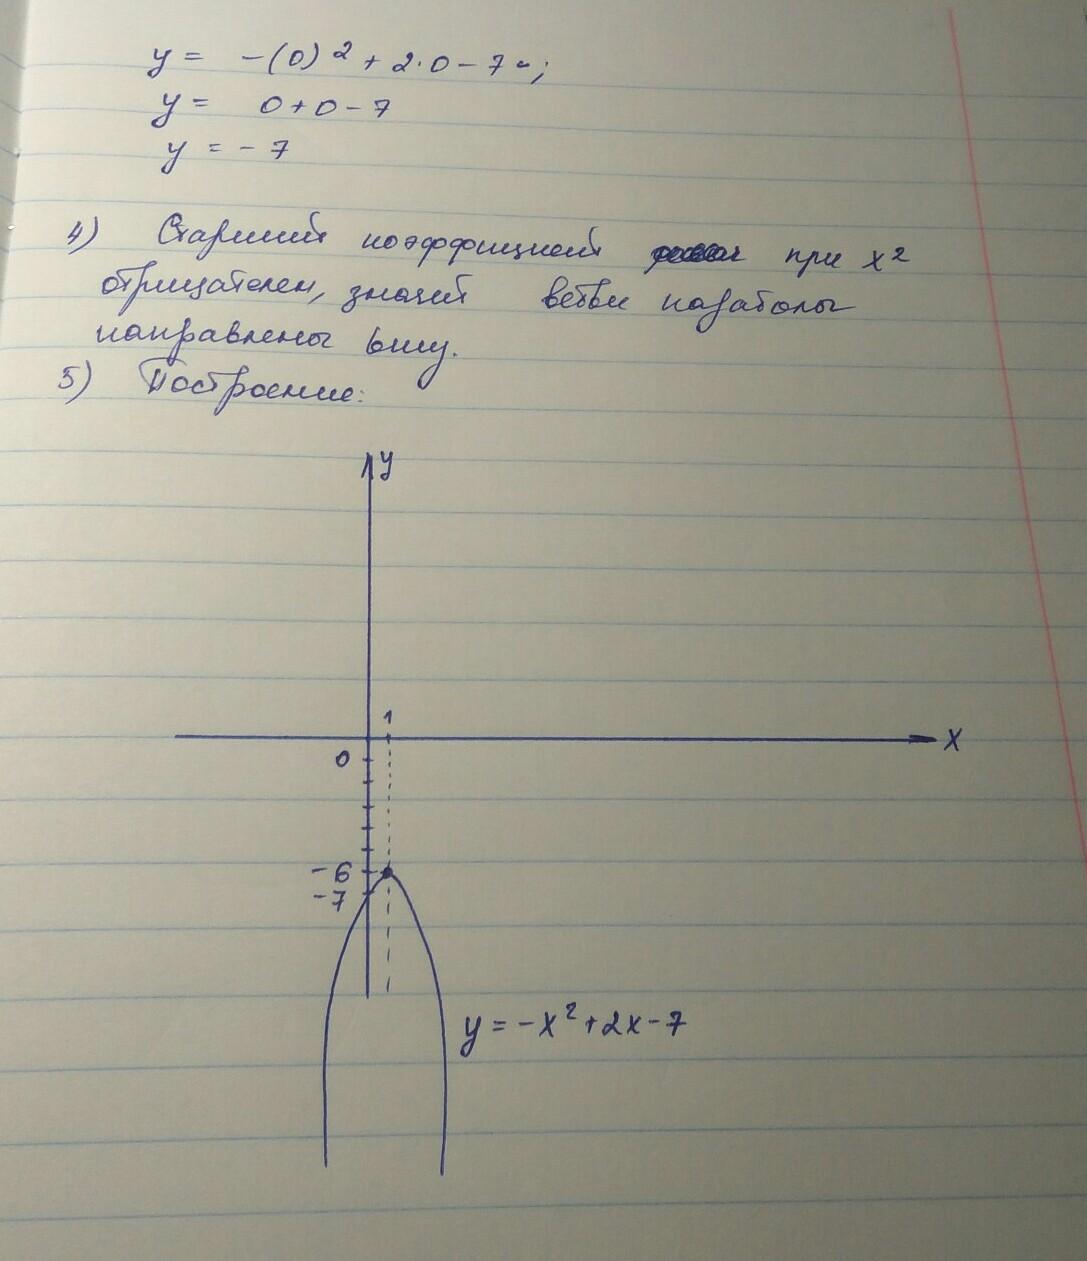 y = -(0)² + 2·0 - 7;
y = 0+0-7
y = -7
4) Старший коэффициент при x²
отрицателен, значит ветви параболы
направлены вниз.
5) Построение:
y
1
0
x
-6
-7
y = -x²+2x-7